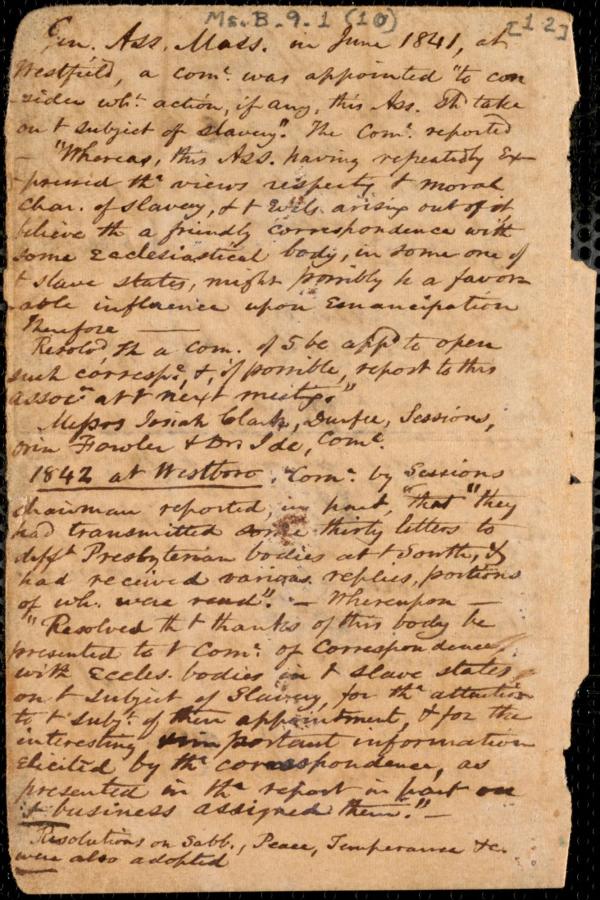 Ms. B. 9. 1 (10)
[12]
Gen. Ass. Mass. in June 1841, at
Westfield, a comᵉ. was appointed "to con
sider whᵗ. action, if any, this Ass. shᵈ take
on t subject of slavery." The Comᵉ. reported
– "Whereas, this Ass. having repeatedly Ex-
pressed thʳ views respectg t moral
char. of slavery, & t Evils arising out of it
believe th a friendly correspondence with
some Ecclesiastical body, in some one of
t slave states, might possibly be a favor-
able influence upon Emancipation
Therefore —
Resolvᵈ, Th a com. of 5 be appᵈ to open
such correspᶜᵉ, &, if possible, report to this
assocⁿ at t next meetg."
Messrs Josiah Clark, Durfee, Sessions,
Orin Fowler & Dr. Ide, Comᵉ.
1842 at Westboro. Comᵉ. by Sessions
chairman reported, in part, "that "they
had transmitted some thirty letters to
diffᵗ Presbyterian bodies at t South, &
had received various replies, portions
of wh. were read". — Whereupon —
"Resolved th t thanks of this body be
presented to t Comᵉ. of Correspondence
with Eccles. bodies in t slave states
on t subject of Slavery, for thʳ attention
to t subjᵗ. of their appointment, & for the
interesting important information
Elicited by thʳ correspondence, as
presented in thʳ report in part on
t business assigned them." —
Resolutions on Sabb., Peace, Temperance &c.
were also adopted